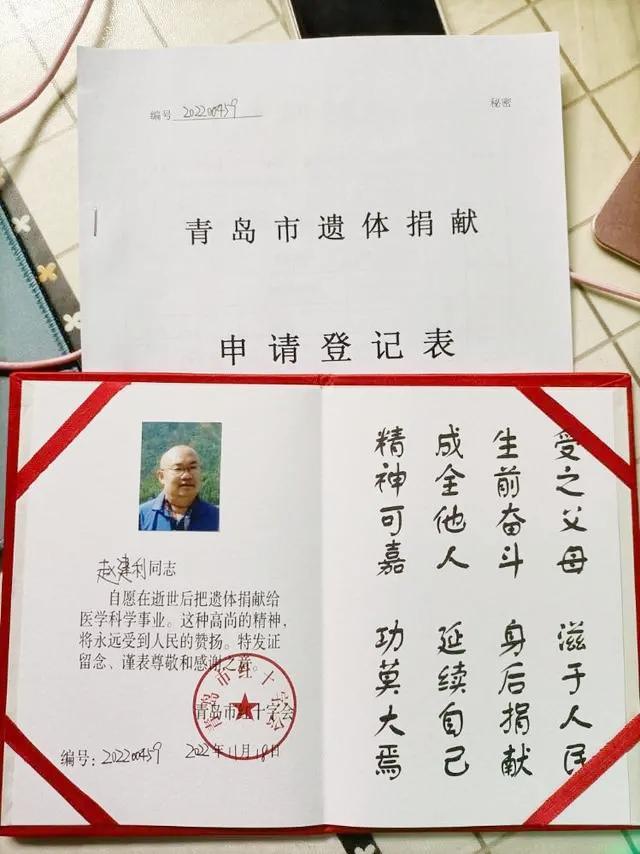 编号 202200459
秘密
青岛市遗体捐献
申请登记表
赵建利同志
自愿在逝世后把遗体捐献给
医学科学事业。这种高尚的精神,
将永远受到人民的赞扬。特发证
留念、谨表尊敬和感谢之意。
青岛市红十字会
青岛市红十字会
编号:202200459
2022年11月18日
受之父母 滋于人民
生前奋斗 身后捐献
成全他人 延续自己
精神可嘉 功莫大焉